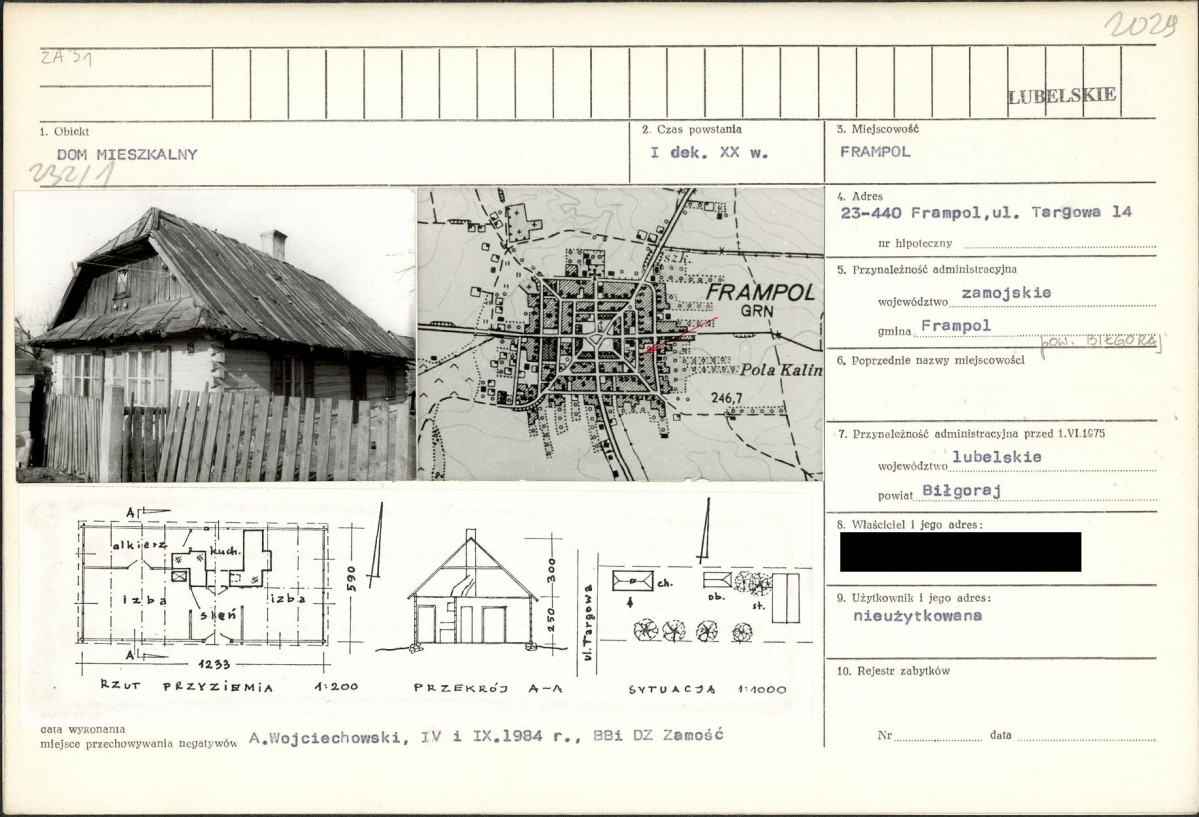 2029
ZA 31
LUBELSKIE
1. Obiekt
DOM MIESZKALNY
232/1
2. Czas powstania
I dek. XX w.
3. Miejscowość
FRAMPOL
4. Adres
23-440 Frampol,ul. Targowa 14
nr hipoteczny
5. Przynależność administracyjna
województwo zamojskie
gmina Frampol
pow. BIŁGORAJ
6. Poprzednie nazwy miejscowości
7. Przynależność administracyjna przed 1.VI.1975
województwo lubelskie
powiat Biłgoraj
8. Właściciel i jego adres:
9. Użytkownik i jego adres:
nieużytkowana
10. Rejestr zabytków
Nr data
szk.
FRAMPOL
GRN
Pola Kalin
246,7
A
alkierz
kuch.
izba
izba
sień
A
590
1233
RZUT PRZYZIEMIA 1:200
300
250
PRZEKRÓJ A-A
ul. Targowa
ch.
ob.
st.
SYTUACJA 1:1000
data wykonania
miejsce przechowywania negatywów A.Wojciechowski, IV i IX.1984 r., BBi DZ Zamość